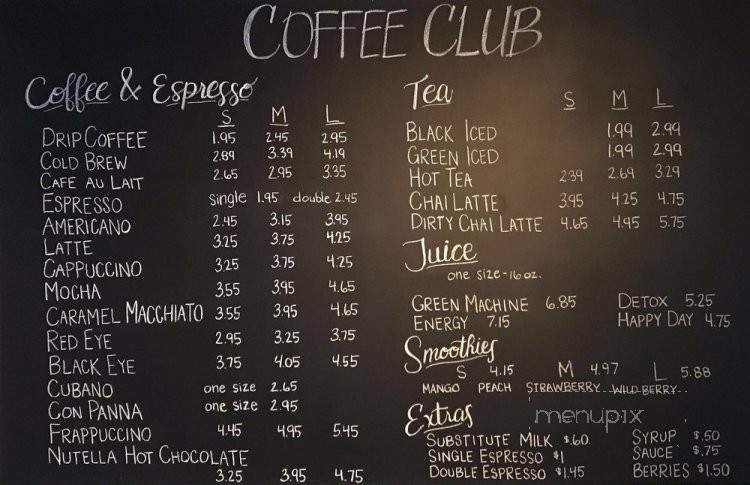 COFFEE CLUB
Coffee & Espresso
S M L
DRIP COFFEE 1.95 2.45 2.95
COLD BREW 2.89 3.39 4.19
CAFE AU LAIT 2.65 2.95 3.35
ESPRESSO single 1.95 double 2.45
AMERICANO 2.45 3.15 3.95
LATTE 3.25 3.75 4.25
CAPPUCCINO 3.25 3.75 4.25
MOCHA 3.55 3.95 4.65
CARAMEL MACCHIATO 3.55 3.95 4.65
RED EYE 2.95 3.25 3.75
BLACK EYE 3.75 4.05 4.55
CUBANO one size 2.65
CON PANNA one size 2.95
FRAPPUCCINO 4.45 4.95 5.45
NUTELLA HOT CHOCOLATE
3.25 3.95 4.75
Tea
S M L
BLACK ICED 1.99 2.99
GREEN ICED 1.99 2.99
HOT TEA 2.39 2.69 3.29
CHAI LATTE 3.95 4.25 4.75
DIRTY CHAI LATTE 4.65 4.95 5.75
Juice
one size - 16 oz.
GREEN MACHINE 6.85 DETOX 5.25
ENERGY 7.15 HAPPY DAY 4.75
Smoothies
S 4.15 M 4.97 L 5.88
MANGO PEACH STRAWBERRY WILD BERRY
Extras
menupix
SUBSTITUTE MILK $.60 SYRUP $.50
SINGLE ESPRESSO $1 SAUCE $.75
DOUBLE ESPRESSO $1.45 BERRIES $1.50